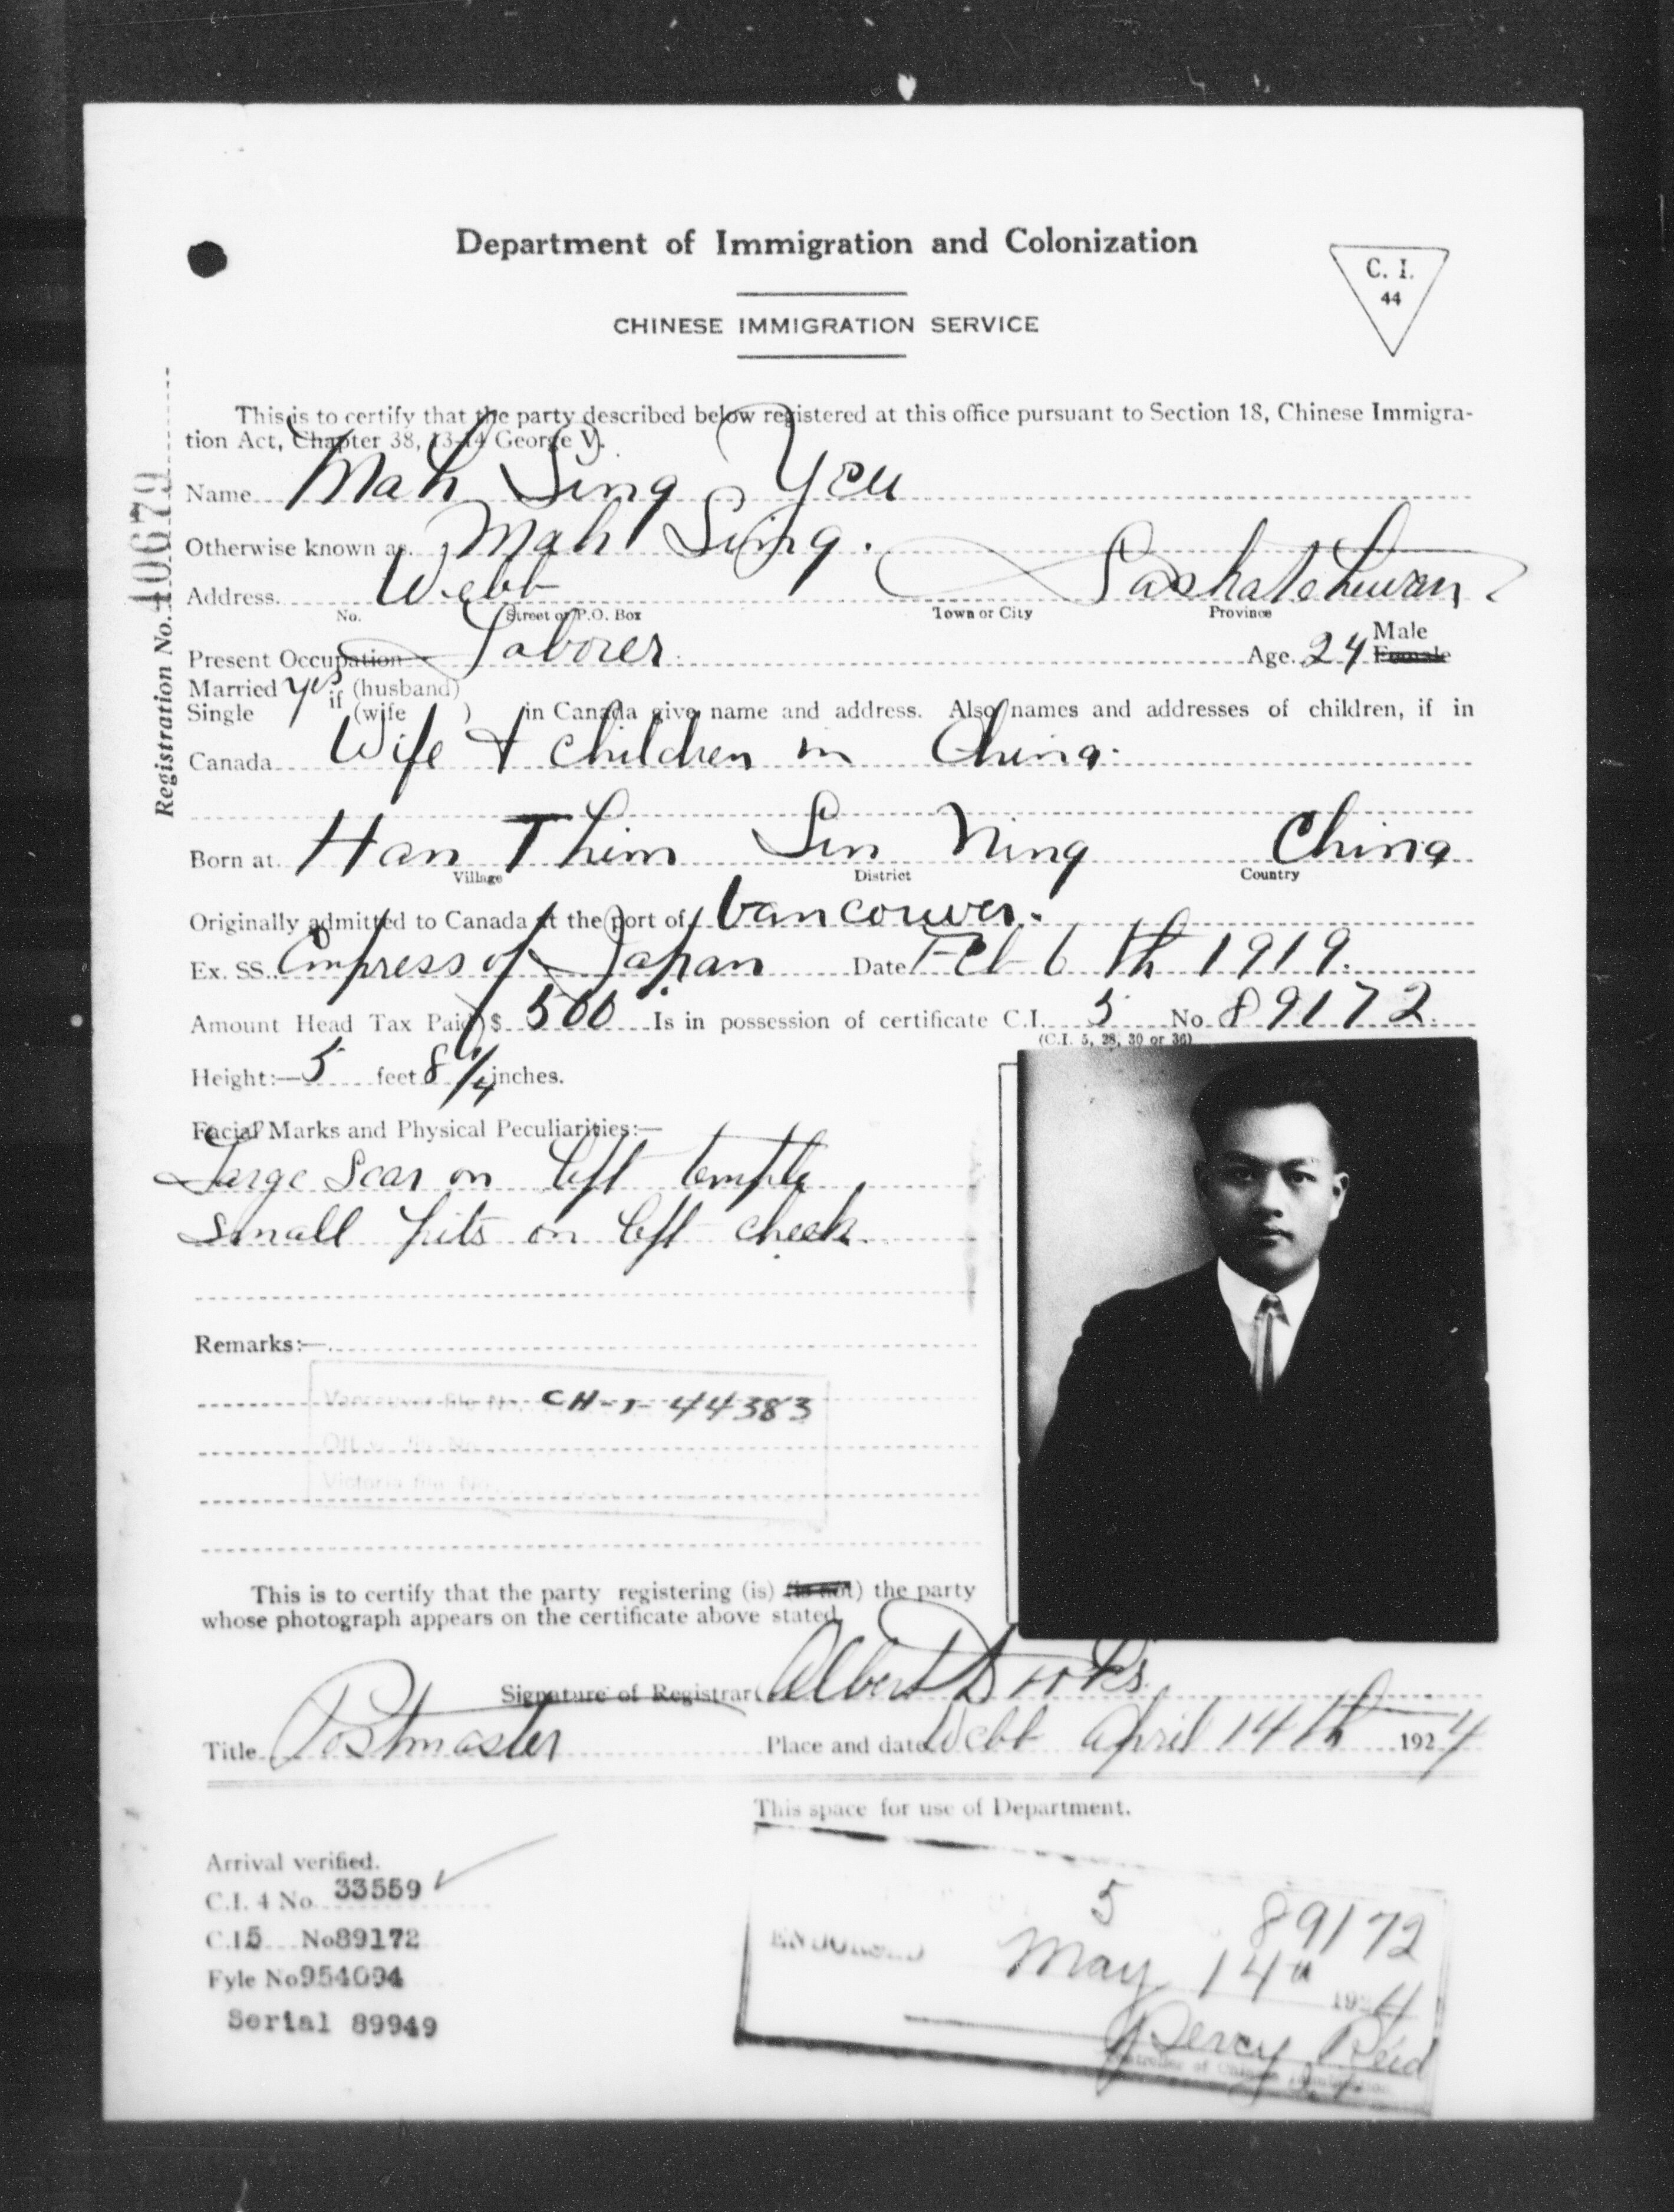 Department of Immigration and Colonization
C. I.
44
CHINESE IMMIGRATION SERVICE
Registration No. 40679
This is to certify that the party described below registered at this office pursuant to Section 18, Chinese Immigra-
tion Act, Chapter 38, 13-14 George V.
Name Mah Sing Yeu
Otherwise known as Mah Sing.
Address Webb Saskatchewan
No. Street or P.O. Box Town or City Province
Present Occupation Laborer Age 24 Male Female
Married yes if (husband)
Single (wife ) in Canada give name and address. Also names and addresses of children, if in
Canada Wife & Children in China.
Born at Han Thim Sin Ning China
Village District Country
Originally admitted to Canada at the port of Vancouver.
Ex. SS. Empress of Japan Date Feb 6th 1919.
Amount Head Tax Paid $ 500 Is in possession of certificate C.I. 5 No. 89172.
(C.I. 5, 28, 30 or 36)
Height:— 5 feet 8 1/4 inches.
Facial Marks and Physical Peculiarities:—
Large Scar on left temple
small pits on left cheek.
Remarks:—
Vancouver file No. CH-1-44383
Victoria file No.
This is to certify that the party registering (is) (is not) the party
whose photograph appears on the certificate above stated
Signature of Registrar Albert
Title Postmaster Place and date Webb April 14th 1924
This space for use of Department.
Arrival verified.
C.I. 4 No. 33559
C.I. 5 No 89172
Fyle No 954094
Serial 89949
5 89172
ENDORSED May 14th 1924
Percy Reid